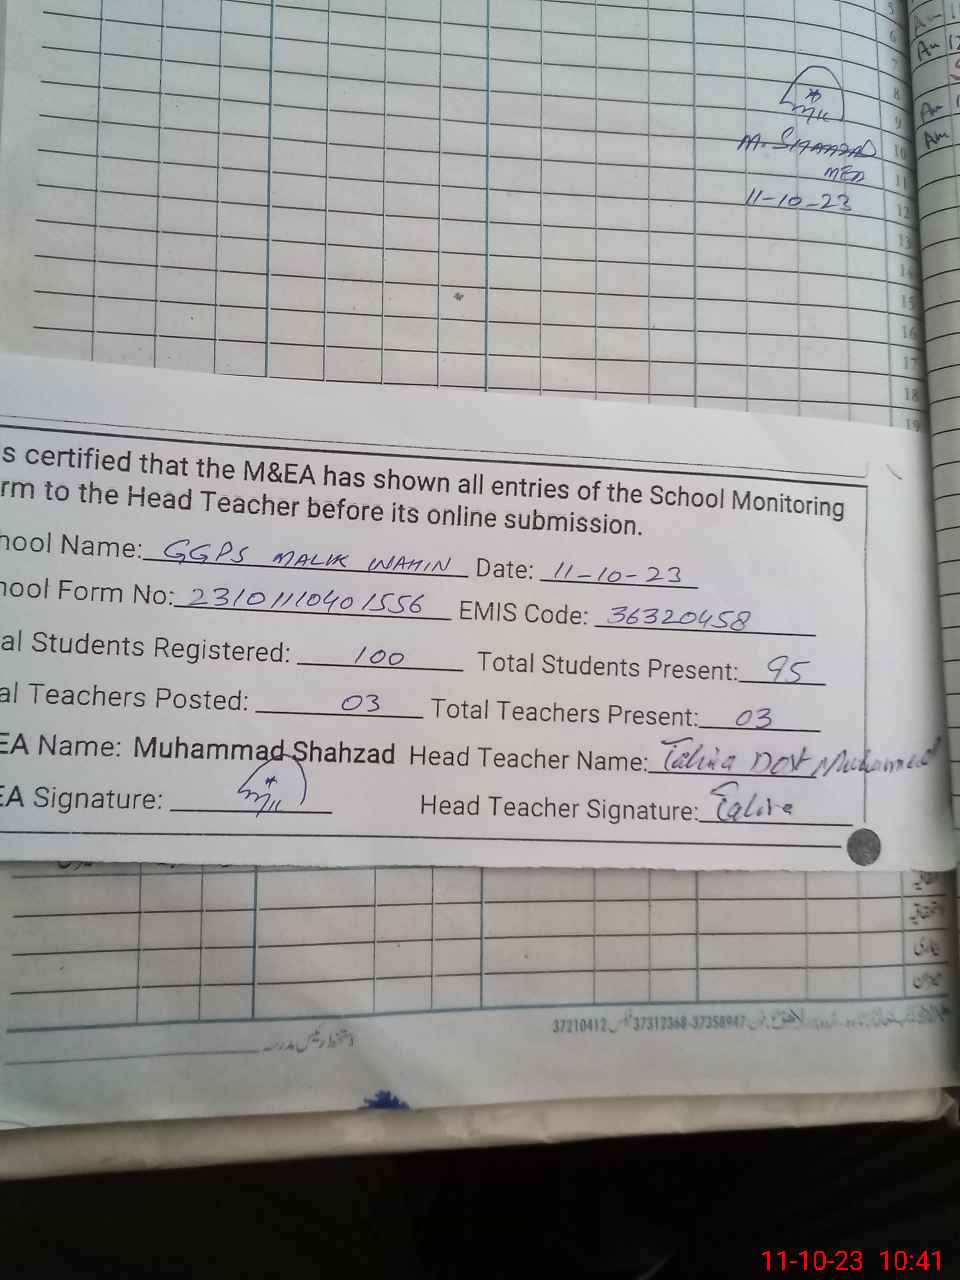 5
6
7
8
9
10
11
12
13
14
15
16
17
18
19
Am
Am
Am
M. SHAHZAD
MEA
11-10-23
s certified that the M&EA has shown all entries of the School Monitoring
rm to the Head Teacher before its online submission.
hool Name: GGPS MALIK WAHIN Date: 11-10-23
hool Form No: 23101110401556 EMIS Code: 36320458
al Students Registered: 100 Total Students Present: 95
al Teachers Posted: 03 Total Teachers Present: 03
EA Name: Muhammad Shahzad Head Teacher Name: Tahira Dost Muhammad
EA Signature: Head Teacher Signature: Tahira
37210412 37312368-37358947
11-10-23 10:41